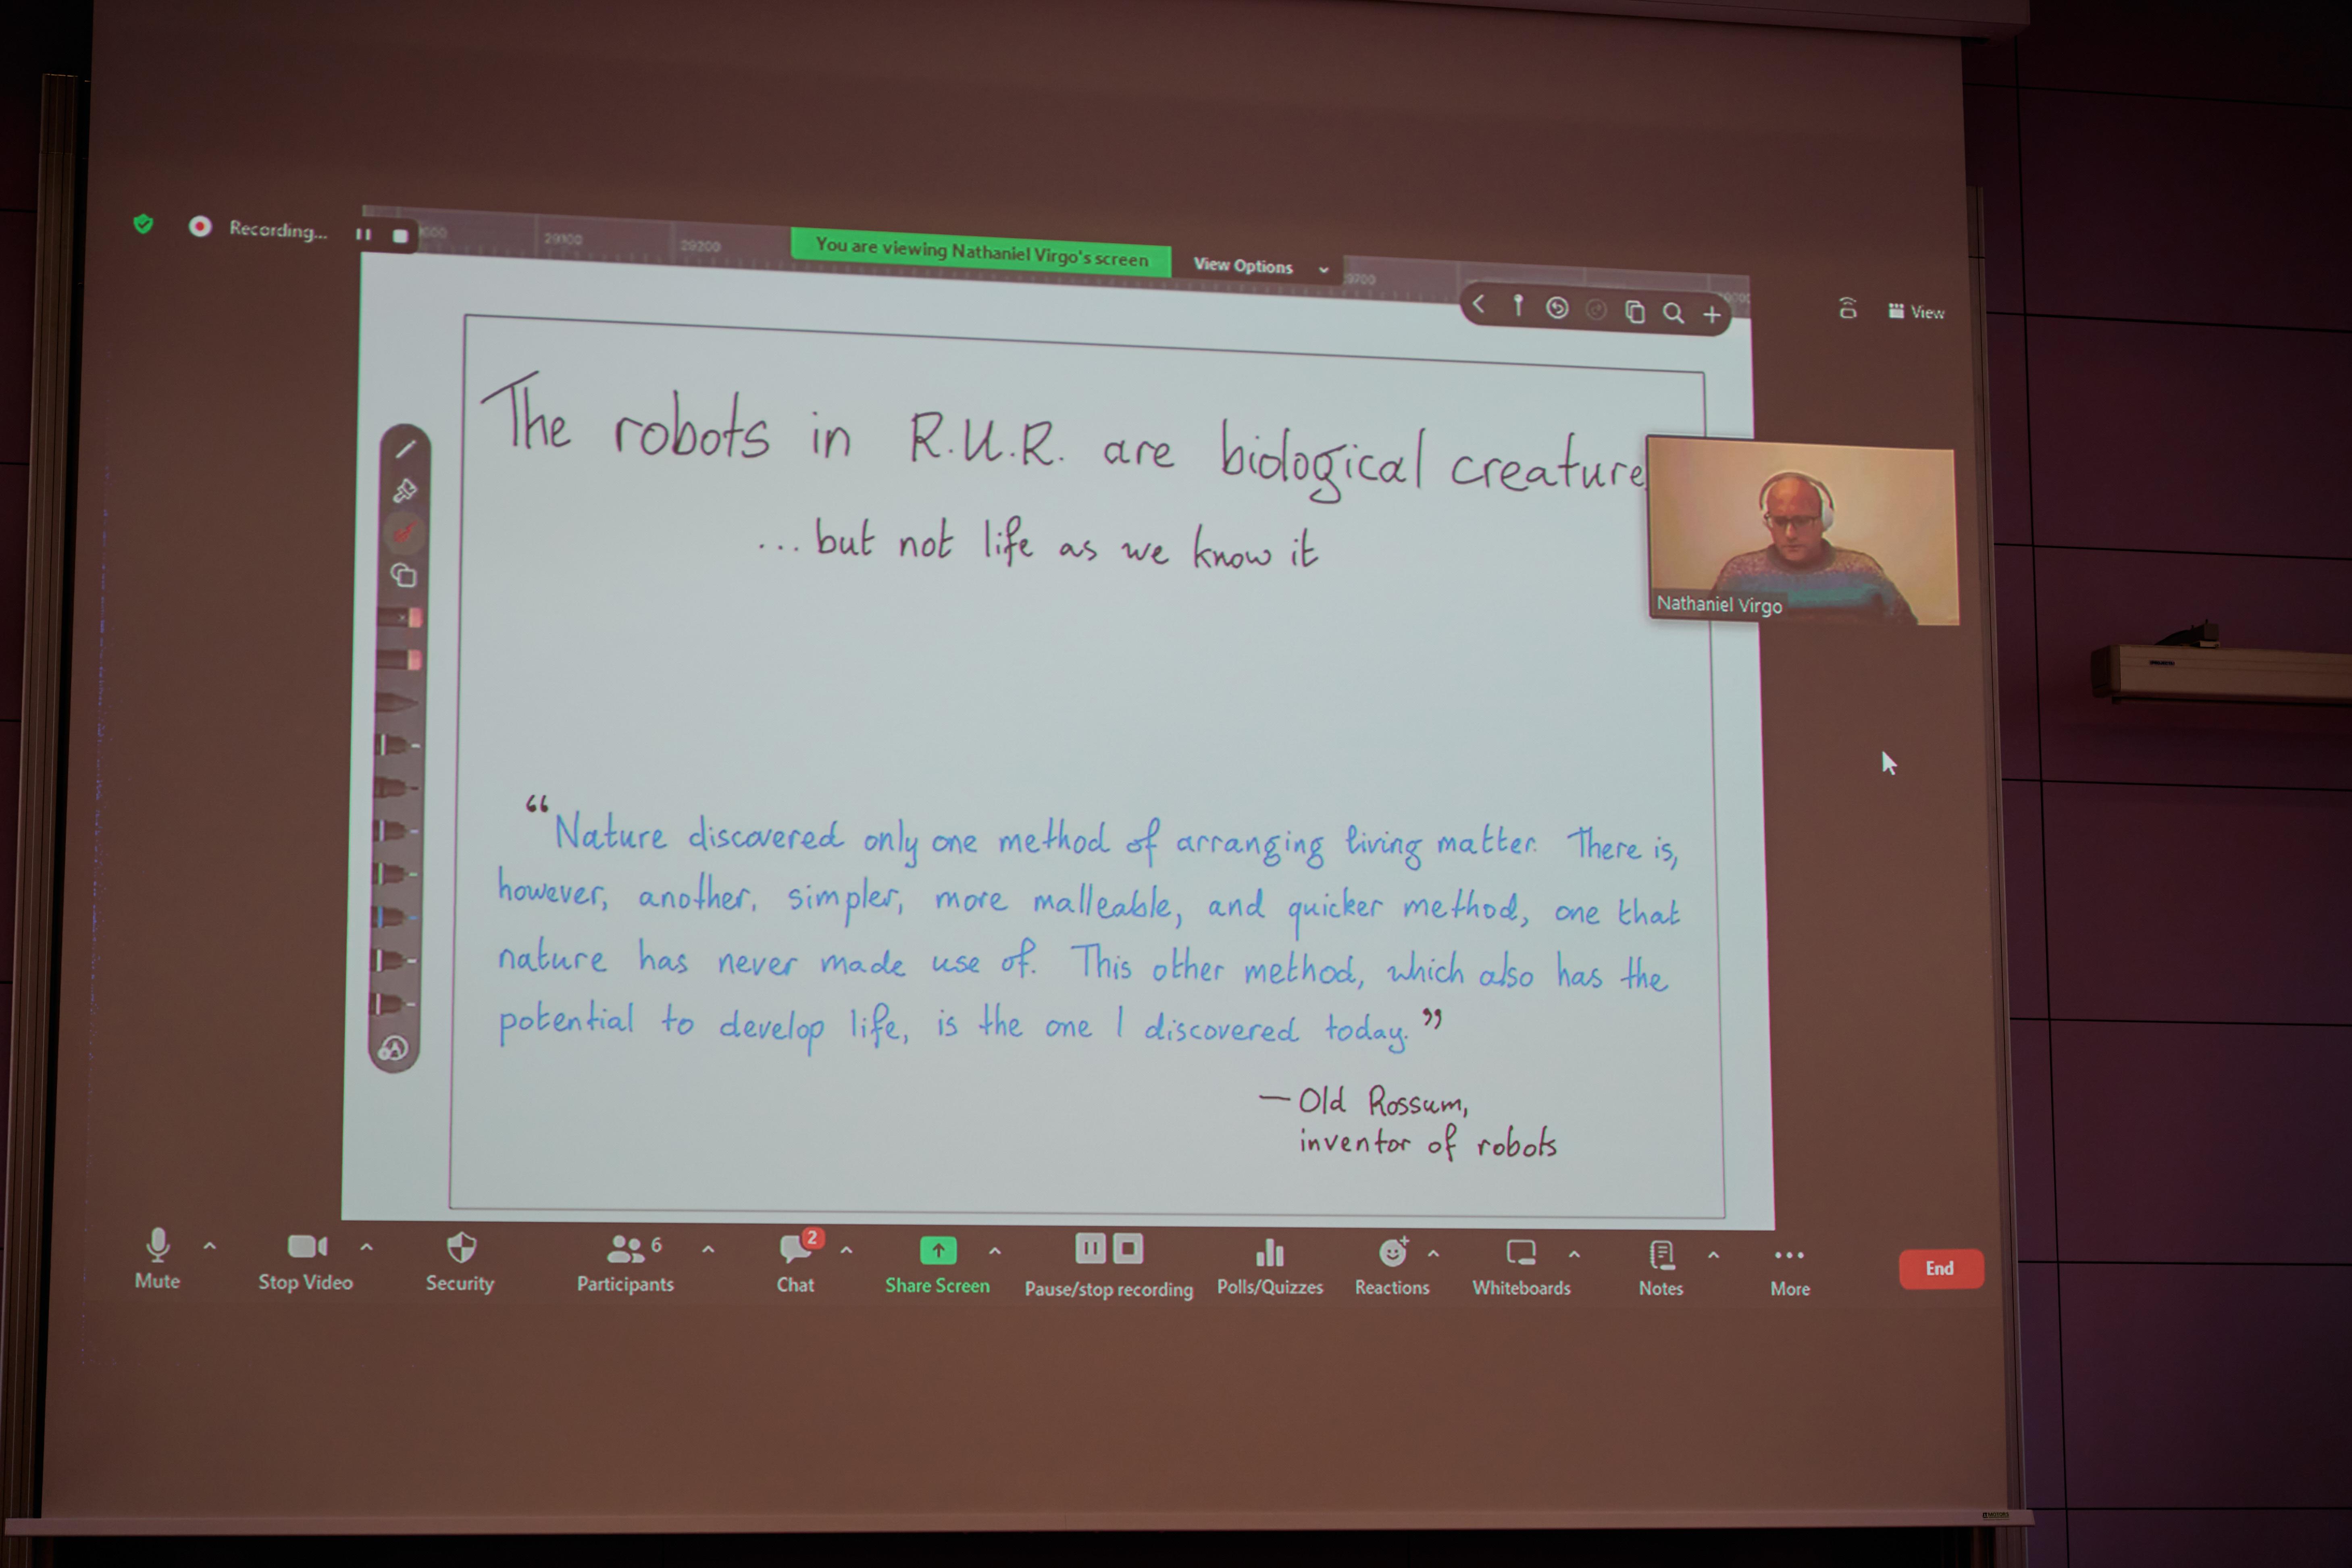 Recording...
29100
29200
You are viewing Nathaniel Virgo's screen
View Options
View
The robots in R.U.R. are biological creature
...but not life as we know it
Nathaniel Virgo
“Nature discovered only one method of arranging living matter. There is,
however, another, simpler, more malleable, and quicker method, one that
nature has never made use of. This other method, which also has the
potential to develop life, is the one I discovered today.”
— Old Rossum,
inventor of robots
Mute
Stop Video
Security
6
Participants
2
Chat
Share Screen
Pause/stop recording
Polls/Quizzes
Reactions
Whiteboards
Notes
More
End